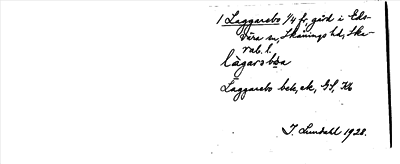 1 Laggarebo 1/4 fr, gård i Els-
våra sn, Skånings hd, Ska-
rab. l.
lágarsbòa
Laggarebo beb, ek, GS, Kb
I. Lundahl 1928.